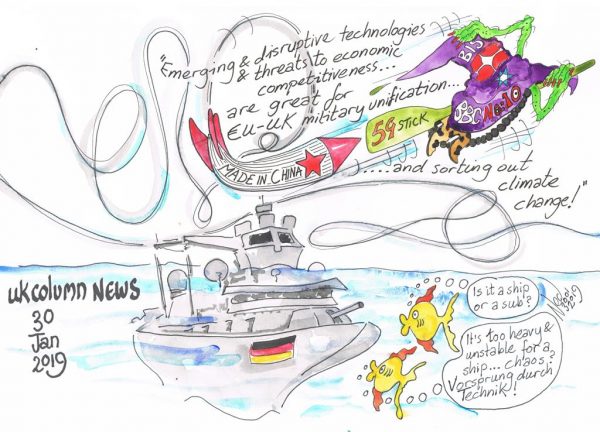 "Emerging & disruptive technologies
& threats to economic
competitiveness...
are great for
EU-UK military unification...
BIS
BBC
No:10
5G STICK
MADE IN CHINA
.....and sorting out
climate
change!"
UKCOLUMN NEWS
30
Jan
2019
Is it a ship
or a sub?
It's too heavy &
unstable for a
ship... chaos?
Vorsprung durch
Technik!
2019